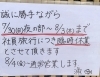 誠に勝手ながら
7/30(月)夜の部～8/3(金)まで
社員旅行につき臨時休業
とさせて頂きます
8/4(土)~通常営業します